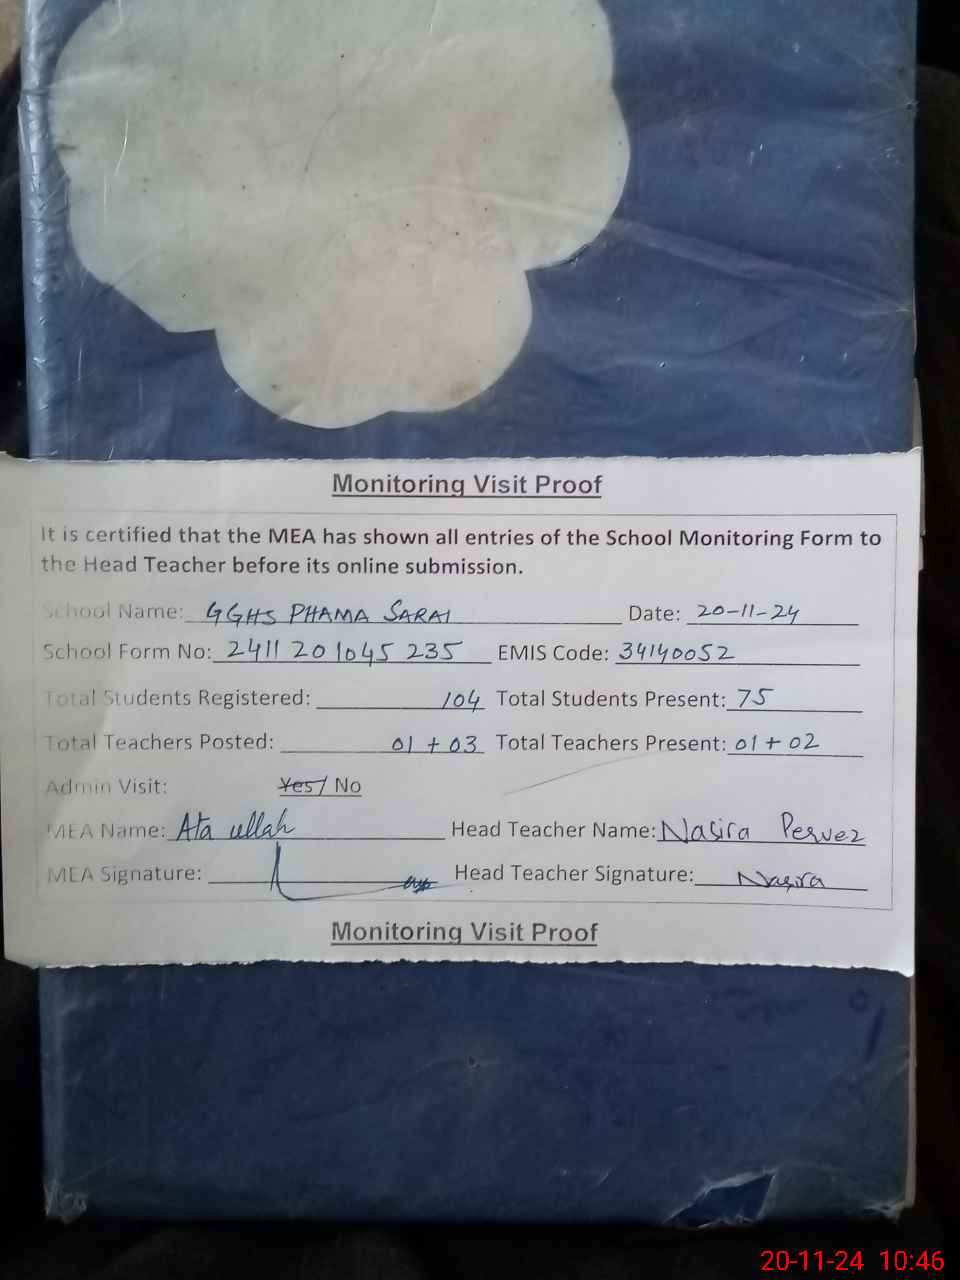 Monitoring Visit Proof
It is certified that the MEA has shown all entries of the School Monitoring Form to
the Head Teacher before its online submission.
School Name: GGHS PHAMA SARAI Date: 20-11-24
School Form No: 2411 201045 235 EMIS Code: 34140052
Total Students Registered: 104 Total Students Present: 75
Total Teachers Posted: 01 + 03 Total Teachers Present: 01 + 02
Admin Visit: Yes/ No
MEA Name: Ata ullah Head Teacher Name: Nasira Pervez
MEA Signature: Head Teacher Signature: Nasira
Monitoring Visit Proof
20-11-24 10:46